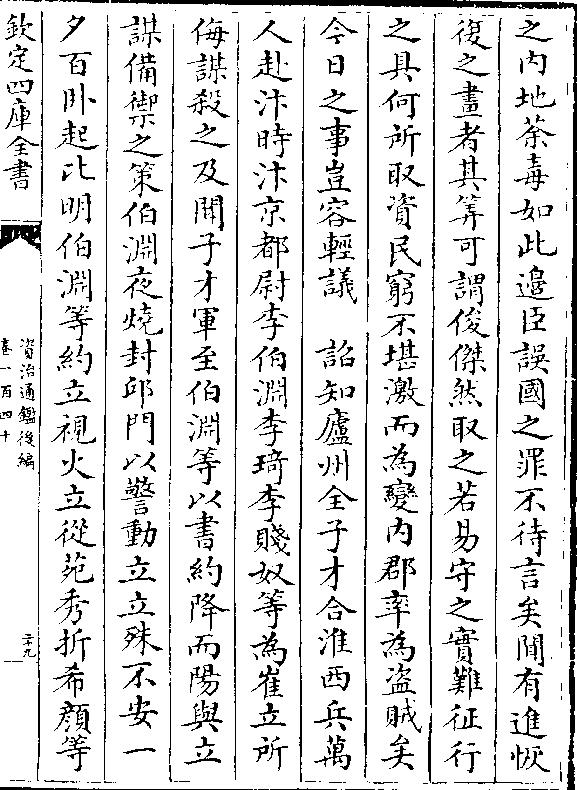 之内地荼毒如此邉臣誤國之罪不待言矣聞有進恢
復之畫者其筭可謂俊傑然取之若易守之實難征行
之具何所取資民窮不堪激而為變内郡率為盜賊矣
今日之事豈容輕議　詔知廬州全子才合淮西兵萬
人赴汴時汴京都尉李伯淵李琦李賤奴等為崔立所
侮謀殺之及聞子才軍至伯淵等以書約降而陽與立
謀備禦之策伯淵夜燒封邱門以警動立立殊不安一
夕百卧起比明伯淵等約立視火立從苑秀折希顔等
欽定四庫全書
資治通鑑後編
卷一百四十
三十九